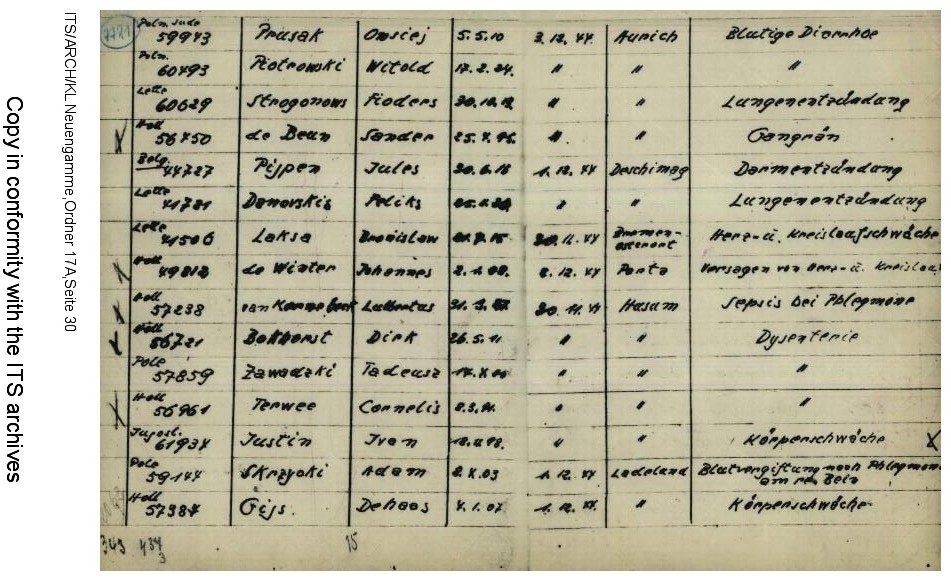 Copy in conformity with the ITS archives
ITS/ARCH/KL Neuengamme, Ordner 17A, Seite 30
7721
Poln. Jude
59943 Prusak 5.5.10 3.12.44 Aurich Blutige Diarrhoe
Poln.
60493 Piotrowski Witold 17.2.24. " " "
Lette
60629 Strogonows Fioders " " Lungenentzündung
Holl
56450 de Beun Sander " " Gangrän
Belg.
44727 Pijpen Jules 30.6.18 1.12.44 Deschimag Darmentzündung
Lette
41781 Danovskis Peliks " " Lungenentzündung
Lette
41506 Laksa Bronislaw 30.11.44 Bremen-
osterort Herz- u. Kreislaufschwäche
Holl
49812 de Winter Johannes 2.12.44 Porta Versagen von Herz- u. Kreislauf
Holl
57238 Lubbertus 30.11.44 Husum Sepsis bei Phlegmone
Holl
56721 Bokhorst Dirk 26.5.11 " " Dysenterie
Pole
57859 Zawadzki Tadeusz " " "
Holl
56961 Terwee Cornelis " " "
Jugosl.
61934 Justin Ivan " " Körperschwäche X
Pole
59144 Skrzycki Adam 2.X.03 1.12.44 Ladelund Blutvergiftung nach Phlegmone
am re. Bein
Holl
57384 Gijs. Dehaas 4.1.07 1.12.44 " Körperschwäche
349 434
3 15